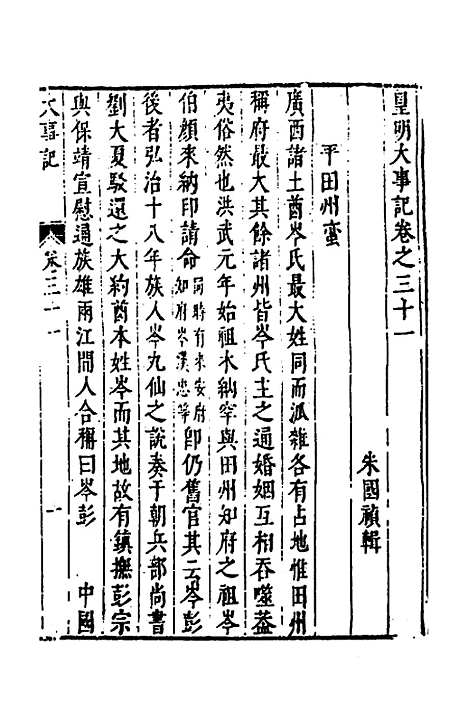 皇明大事記卷之三十一
朱國禎輯
平田州蠻
廣西諸土酋岑氏最大姓同而派雜各有占地惟田州
稱府最大其餘諸州皆岑氏主之通婚姻互相吞噬葢
夷俗然也洪武元年始祖木納罕與田州知府之祖岑
伯顏來納印請命同時有來安府知府岑漢忠等卽仍舊官其云岑彭
後者弘治十八年族人岑九仙之說奏于朝兵部尚書
劉大夏駁還之大約酋本姓岑而其地故有鎮撫彭宗
與保靖宣慰通族雄兩江間人合稱曰岑彭 中國
大事記 卷三十一 一